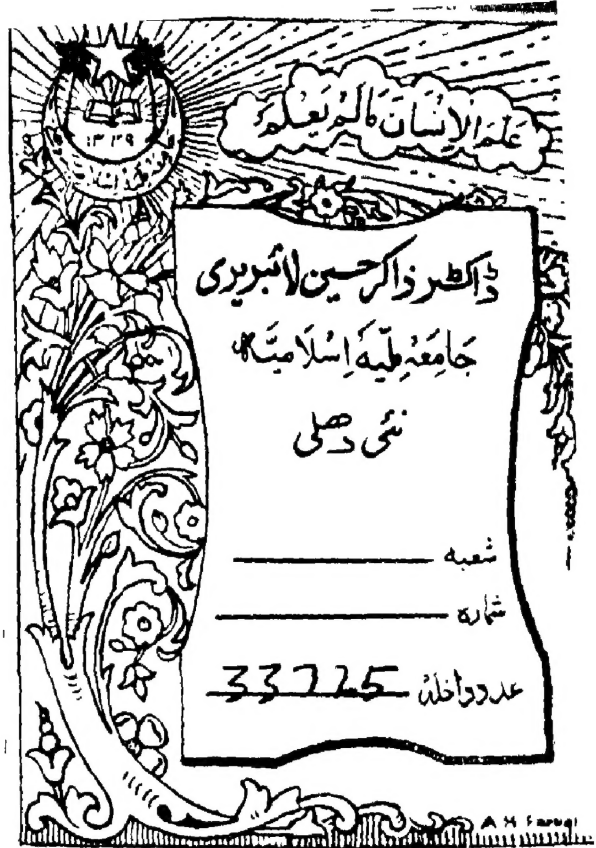 عَلَّمَ الْاِنْسَانَ مَا لَمْ يَعْلَمْ
۱۳۳۹
ڈاکٹر ذاکر حسین لائبریری
جَامِعَہ مِلّیہ اِسْلَامیَّہ
نئی دھلی
شعبہ
شمارہ
عدد داخلہ 33725
A H Faruqi